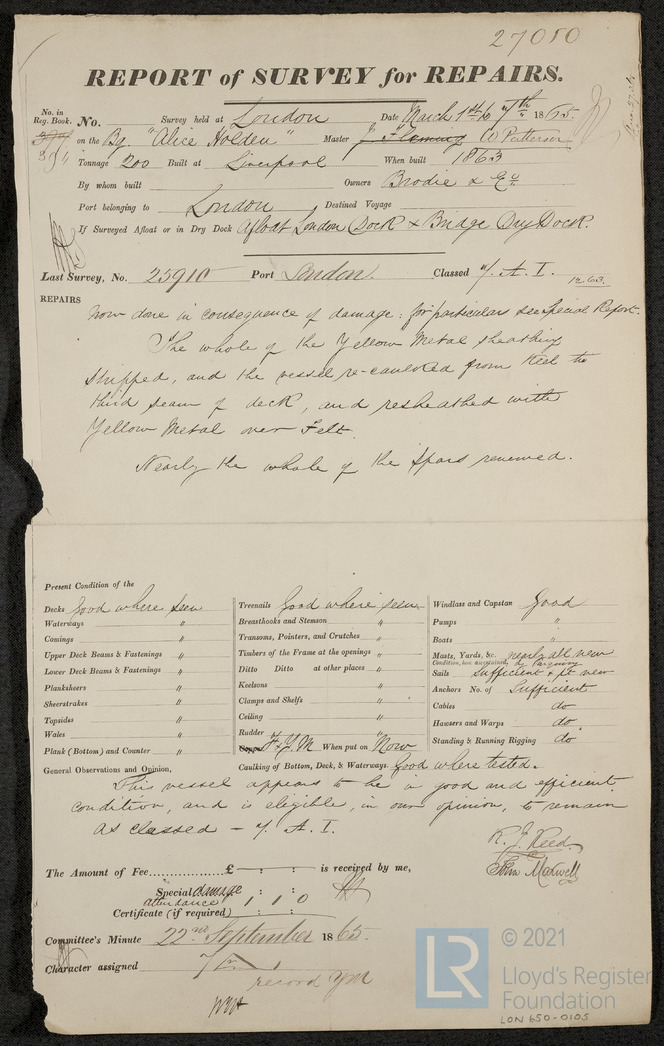 27050
REPORT of SURVEY for REPAIRS.
No. in Reg. Book. No. Survey held at London Date March 1st to 7th 1865.
on the Bg. "Alice Holden" Master J. Fleming W Patterson
Tonnage 200 Built at Liverpool When built 1863
By whom built Owners Brodie & Co
Port belonging to London Destined Voyage
If Surveyed Afloat or in Dry Dock Afloat London Dock & Bridge Dry Dock.
Last Survey, No. 25910 Port London. Classed A. I. 12.63.
REPAIRS
Now done in consequence of damage: for particulars see Special Report.
The whole of the Yellow Metal Sheathing
stripped, and the vessel re-caulked from Keel to
third seam of deck, and resheathed with
Yellow Metal over Felt.
Nearly the whole of the Spars renewed.
Present Condition of the
Decks Good where seen
Waterways "
Comings "
Upper Deck Beams & Fastenings "
Lower Deck Beams & Fastenings "
Planksheers "
Sheerstrakes "
Topsides "
Wales "
Plank (Bottom) and Counter "
Treenails Good where seen
Breasthooks and Stemson "
Transoms, Pointers, and Crutches "
Timbers of the Frame at the openings "
Ditto Ditto at other places "
Keelsons "
Clamps and Shelfs "
Ceiling "
Rudder "
Copper F & Y.M When put on "Now
Caulking of Bottom, Deck, & Waterways. Good where tested.
Windlass and Capstan Good
Pumps "
Boats "
Masts, Yards, &c. nearly all new
Condition, how ascertained,
Sails Sufficient & pt new
Anchors No. of Sufficient
Cables do
Hawsers and Warps do
Standing & Running Rigging do
General Observations and Opinion,
This vessel appears to be in good and efficient
condition, and is eligible, in our opinion, to remain
as classed – A. I.
R. J. Reed
John Maxwell
The Amount of Fee.................. £ : : is received by me,
Special damage : :
attendance 1 1 0
Certificate (if required) : :
Committee's Minute 22nd September 1865.
Character assigned
record YM
© 2021
LR
Lloyd's Register
Foundation
LON 650-0105